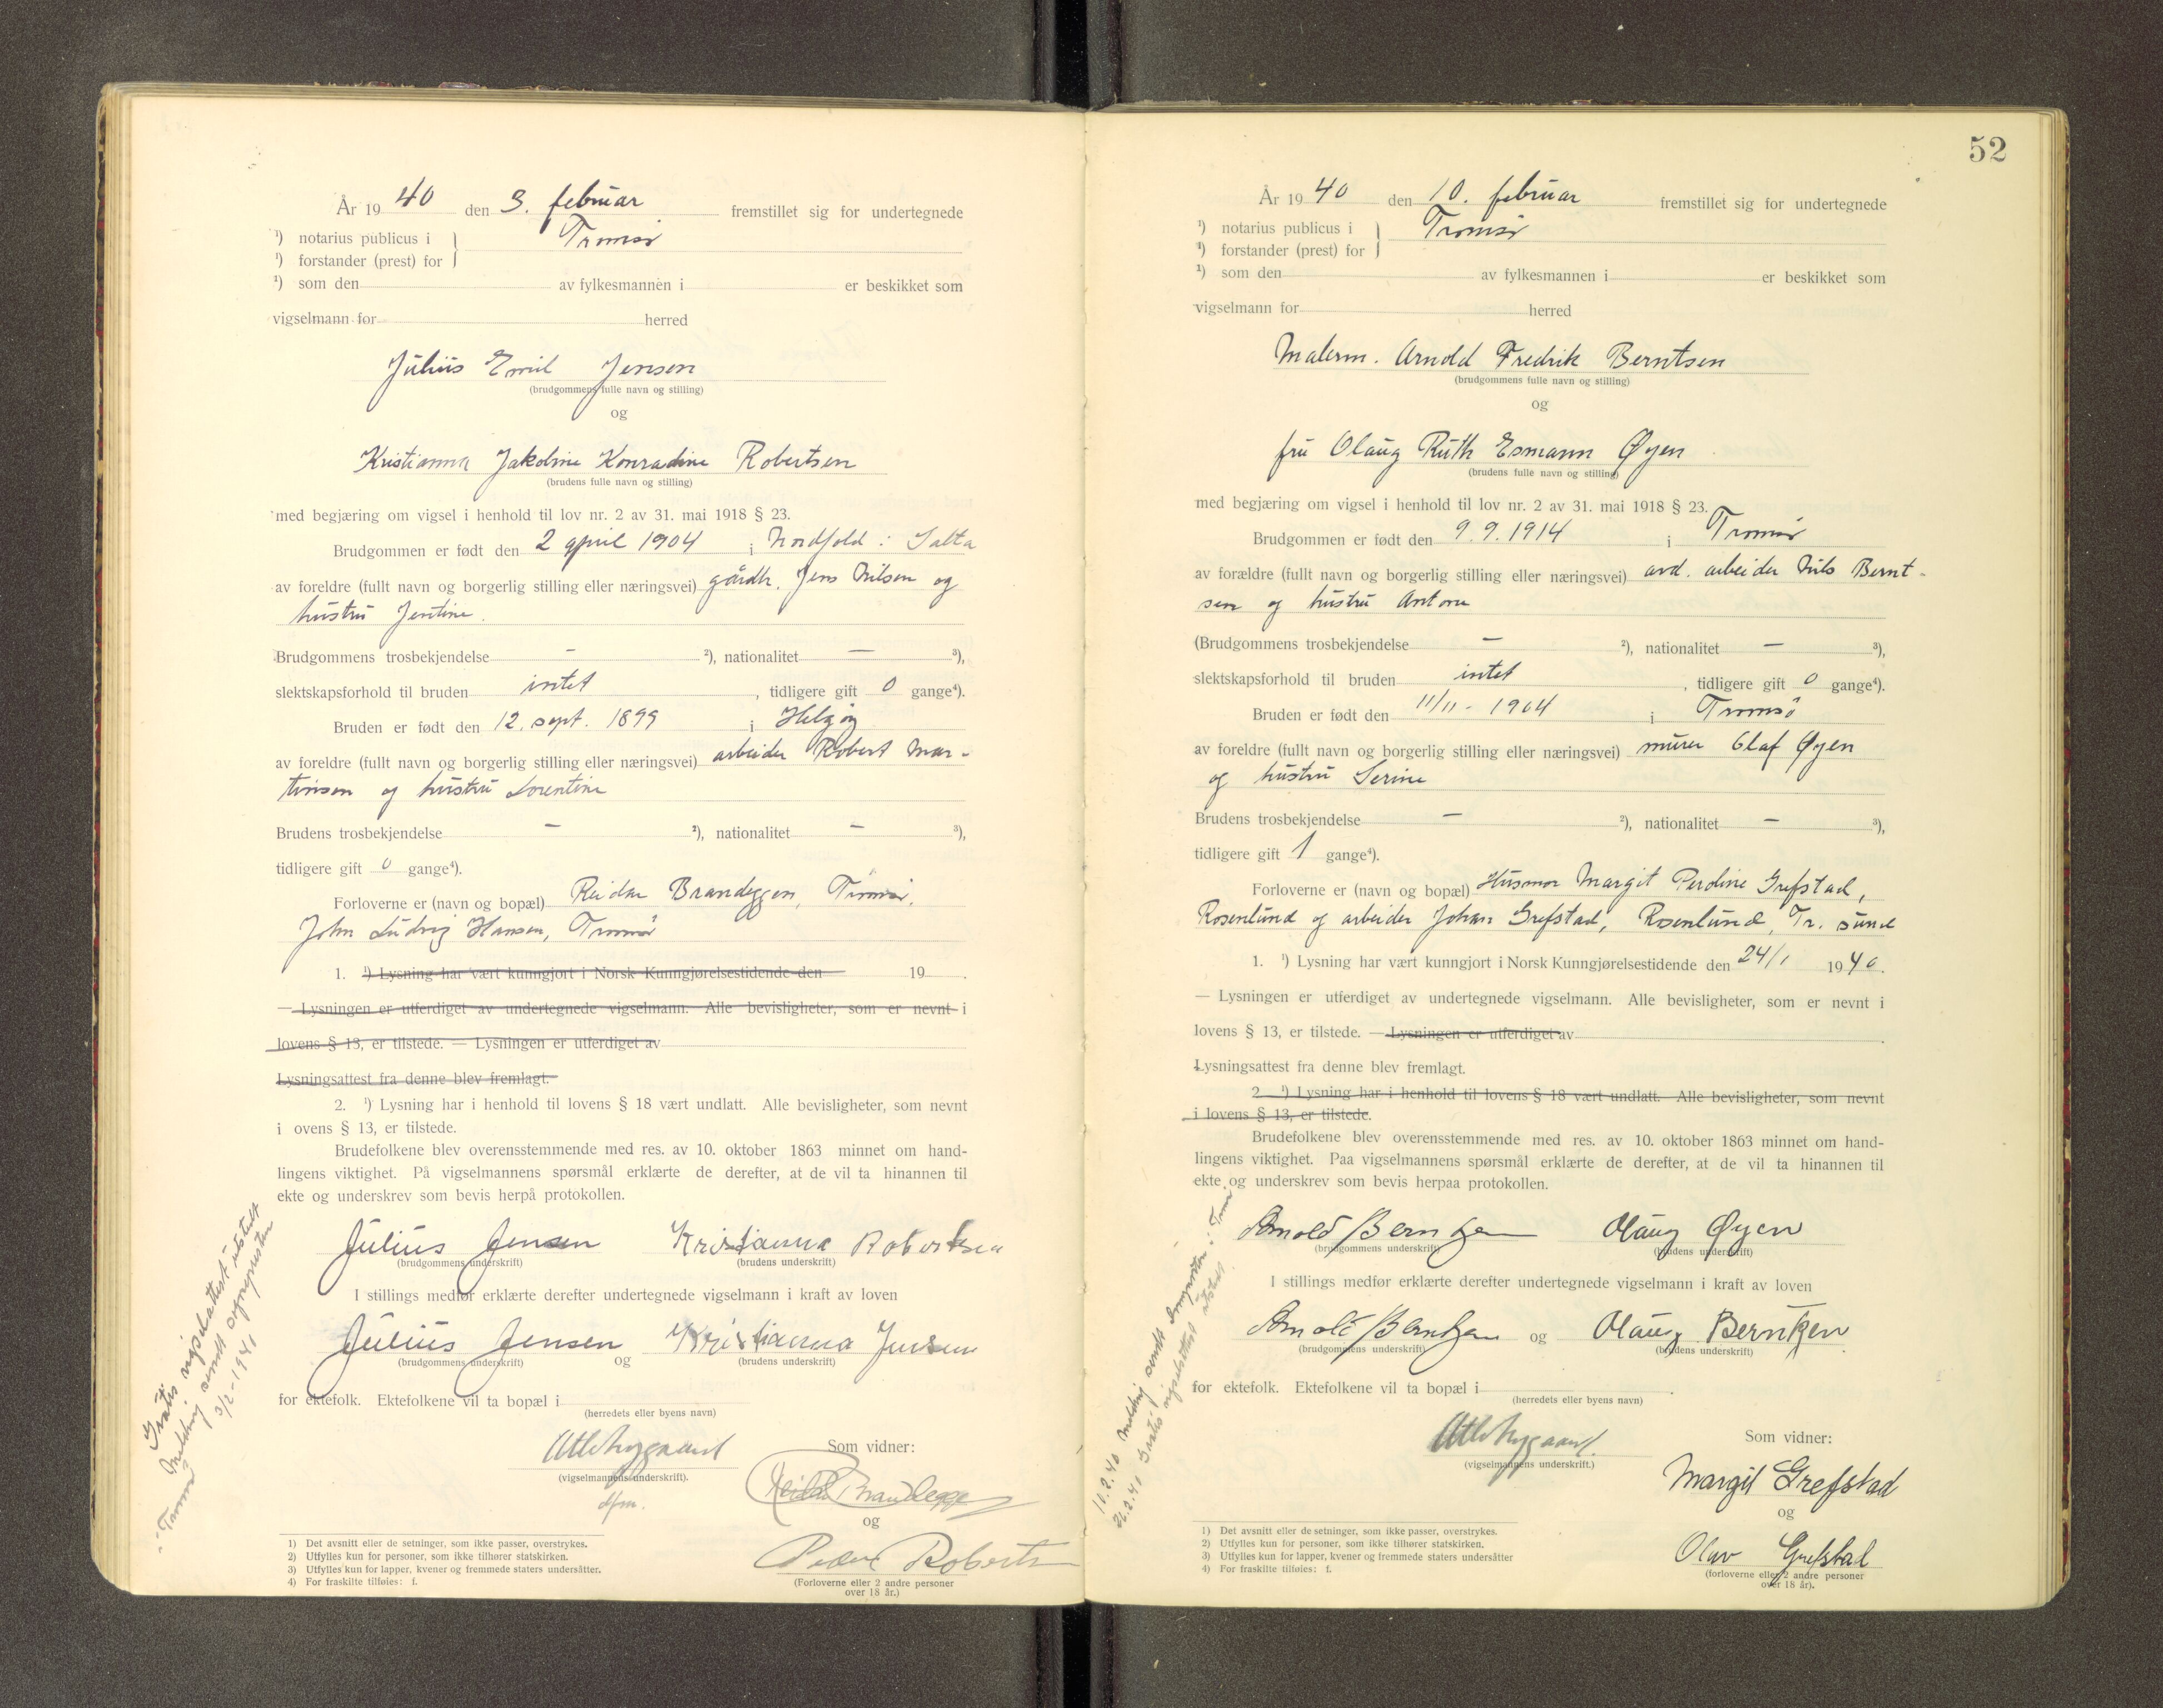 År 19 40 den 3. februar fremstillet sig for undertegnede
¹) notarius publicus i } Tromsø
¹) forstander (prest) for
¹) som den av fylkesmannen i er beskikket som
vigselmann for herred
Julius Emil Jensen
(brudgommens fulle navn og stilling)
og
Kristianna Jakobine Konradine Robertsen
(brudens fulle navn og stilling)
med begjæring om vigsel i henhold til lov nr. 2 av 31. mai 1918 § 23.
Brudgommen er født den 2 april 1904 i Nordfold i Salta
av foreldre (fullt navn og borgerlig stilling eller næringsvei) gårdbr. Jens Nilsen og
hustru Jentine.
Brudgommens trosbekjendelse — ²), nationalitet — ³),
slektskapsforhold til bruden intet, tidligere gift 0 gange⁴).
Bruden er født den 12. sept. 1899 i Helgøy
av foreldre (fullt navn og borgerlig stilling eller næringsvei) arbeider Robert Mar-
tinsen og hustru Lorentine
Brudens trosbekjendelse — ²), nationalitet — ³),
tidligere gift 0 gange⁴).
Forloverne er (navn og bopæl) Reidar Brandeggen, Tromsø.
John Ludvig Hansen, Tromsø
1. ¹) Lysning har vært kunngjort i Norsk Kunngjørelsestidende den 19 .
— Lysningen er utferdiget av undertegnede vigselmann. Alle bevisligheter, som er nevnt i
lovens § 13, er tilstede. — Lysningen er utferdiget av
Lysningsattest fra denne blev fremlagt.
2. ¹) Lysning har i henhold til lovens § 18 vært undlatt. Alle bevisligheter, som nevnt
i ovens § 13, er tilstede.
Brudefolkene blev overensstemmende med res. av 10. oktober 1863 minnet om hand-
lingens viktighet. På vigselmannens spørsmål erklærte de derefter, at de vil ta hinannen til
ekte og underskrev som bevis herpå protokollen.
Julius Jensen Kristianna Robertsen
(brudgommens underskrift) (brudens underskrift)
I stillings medfør erklærte derefter undertegnede vigselmann i kraft av loven
Julius Jensen og Kristianna Jensen
(brudgommens underskrift) (brudens underskrift)
for ektefolk. Ektefolkene vil ta bopæl i
(herredets eller byens navn)
Som vidner:
(vigselmannens underskrift).
dfm.
Reidar Brandegge
og
Peder Roberts
(Forloverne eller 2 andre personer
over 18 år.)
Gratis vigselattest utstedt
Melding sendt sogneprsten
i Tromsø 3/2-1941
1) Det avsnitt eller de setninger, som ikke passer, overstrykes.
2) Utfylles kun for personer, som ikke tilhører statskirken.
3) Utfylles kun for lapper, kvener og fremmede staters undersåtter.
4) For fraskilte tilføies: f.
52
År 19 40 den 10. februar fremstillet sig for undertegnede
¹) notarius publicus i } Tromsø
¹) forstander (prest) for
¹) som den av fylkesmannen i er beskikket som
vigselmann for herred
Malerm. Arnold Fredrik Berntsen
(brudgommens fulle navn og stilling)
og
fru Olaug Ruth Esmann Øyen
(brudens fulle navn og stilling)
med begjæring om vigsel i henhold til lov nr. 2 av 31. mai 1918 § 23.
Brudgommen er født den 9.9.1914 i Tromsø
av forældre (fullt navn og borgerlig stilling eller næringsvei) avd. arbeider Nils Bernt-
sen og hustru Antone
(Brudgommens trosbekjendelse — ²), nationalitet — ³),
slektskapsforhold til bruden intet, tidligere gift 0 gange⁴).
Bruden er født den 11/11 - 1904 i Tromsø
av foreldre (fullt navn og borgerlig stilling eller næringsvei) murer Olaf Øyen
og hustru Serine
Brudens trosbekjendelse — ²), nationalitet — ³),
tidligere gift 1 gange⁴).
Forloverne er (navn og bopæl) Husmor Margit Perdine Grefstad,
Rosenlund og arbeider Johan Grefstad, Rosenlund, Tr. sund
1. ¹) Lysning har vært kunngjort i Norsk Kunngjørelsestidende den 24/1 1940.
— Lysningen er utferdiget av undertegnede vigselmann. Alle bevisligheter, som er nevnt i
lovens § 13, er tilstede. — Lysningen er utferdiget av .
Lysningsattest fra denne blev fremlagt.
2 ¹) Lysning har i henhold til lovens § 18 vært undlatt. Alle bevisligheter, som nevnt
i lovens § 13, er tilstede.
Brudefolkene blev overensstemmende med res. av 10. oktober 1863 minnet om hand-
lingens viktighet. Paa vigselmannens spørsmål erklærte de derefter, at de vil ta hinannen til
ekte og underskrev som bevis herpaa protokollen.
Arnold Berntzen Olaug Øyen
(brudgommens underskrift) (brudens underskrift)
I stillings medfør erklærte derefter undertegnede vigselmann i kraft av loven
Arnold Berntzen og Olaug Berntzen
(brudgommens underskrift) (brudens underskrift)
for ektefolk. Ektefolkene vil ta bopæl i .
(herredets eller byens navn)
Som vidner:
(vigselmannens underskrift.)
Margit Grefstad
og
Olav Grefstad
(forloverne eller 2 andre personer
over 18 år).
10.2.40 Melding sendt sogneprsten i Tromsø
26.2.40 Gratis vigselattest utstedt.
1) Det avsnitt eller de setninger, som ikke passer, overstrykes.
2) Utfylles kun for personer, som ikke tilhører statskirken.
3) Utfylles kun for lapper, kvener og fremmede staters undersåtter
4) For fraskilte tilføies: f.